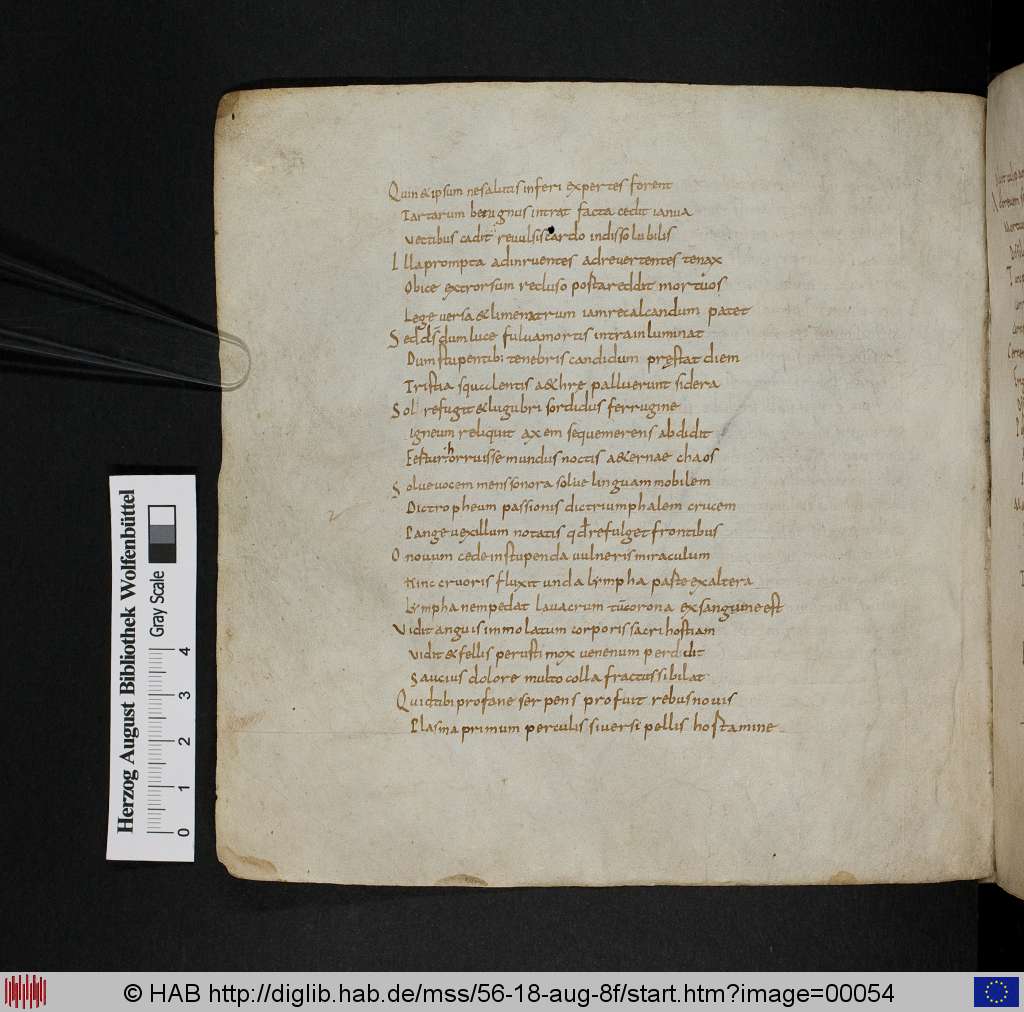 Quin & ipsum ne salutis inferi expertes forent
Tartarum benignus intrat facta cedit ianua
Vectibus cadit revulsis cardo indissolubilis
Illa prompta ad inruentes ad revertentes tenax
Obice extrorsum recluso posta reddit mortuos
Lege versa & limen atrum iam recalcandum patet
Sed ds dum luce fulva mortis intra inluminat
Dum stupentibi tenebris candidum pręstat diem
Tristia squculentis a&hre palluerunt sidera
Sol refugit & lugubri sordidus ferrugine
igneum reliquit axem seque merens abdidit
Fertur horruisse mundus noctis a&ernae chaos
Solve vocem mens sonora solve linguam mobilem
Dic tropheum passionis dic triumphalem crucem
Pange vexillum notatis qđ refulget frontibus
O novum cede instupenda vulneris miraculum
Hinc cruoris fluxit unda lympha paste ex altera
Lympha nempe dat lavacrum tū corona ex sanguine est
Vidit anguis immolatum corporis sacri hostiam
vidit & fellis perusti mox venenum perdidit
Saucius dolore multo colla fractus sibilat
Quid tibi profane serpens profuit rebus novis
Plasma primum perculis siversi pellis hostamine
Herzog August Bibliothek Wolfenbüttel
Gray Scale
0 1 2 3 4
© HAB http://diglib.hab.de/mss/56-18-aug-8f/start.htm?image=00054